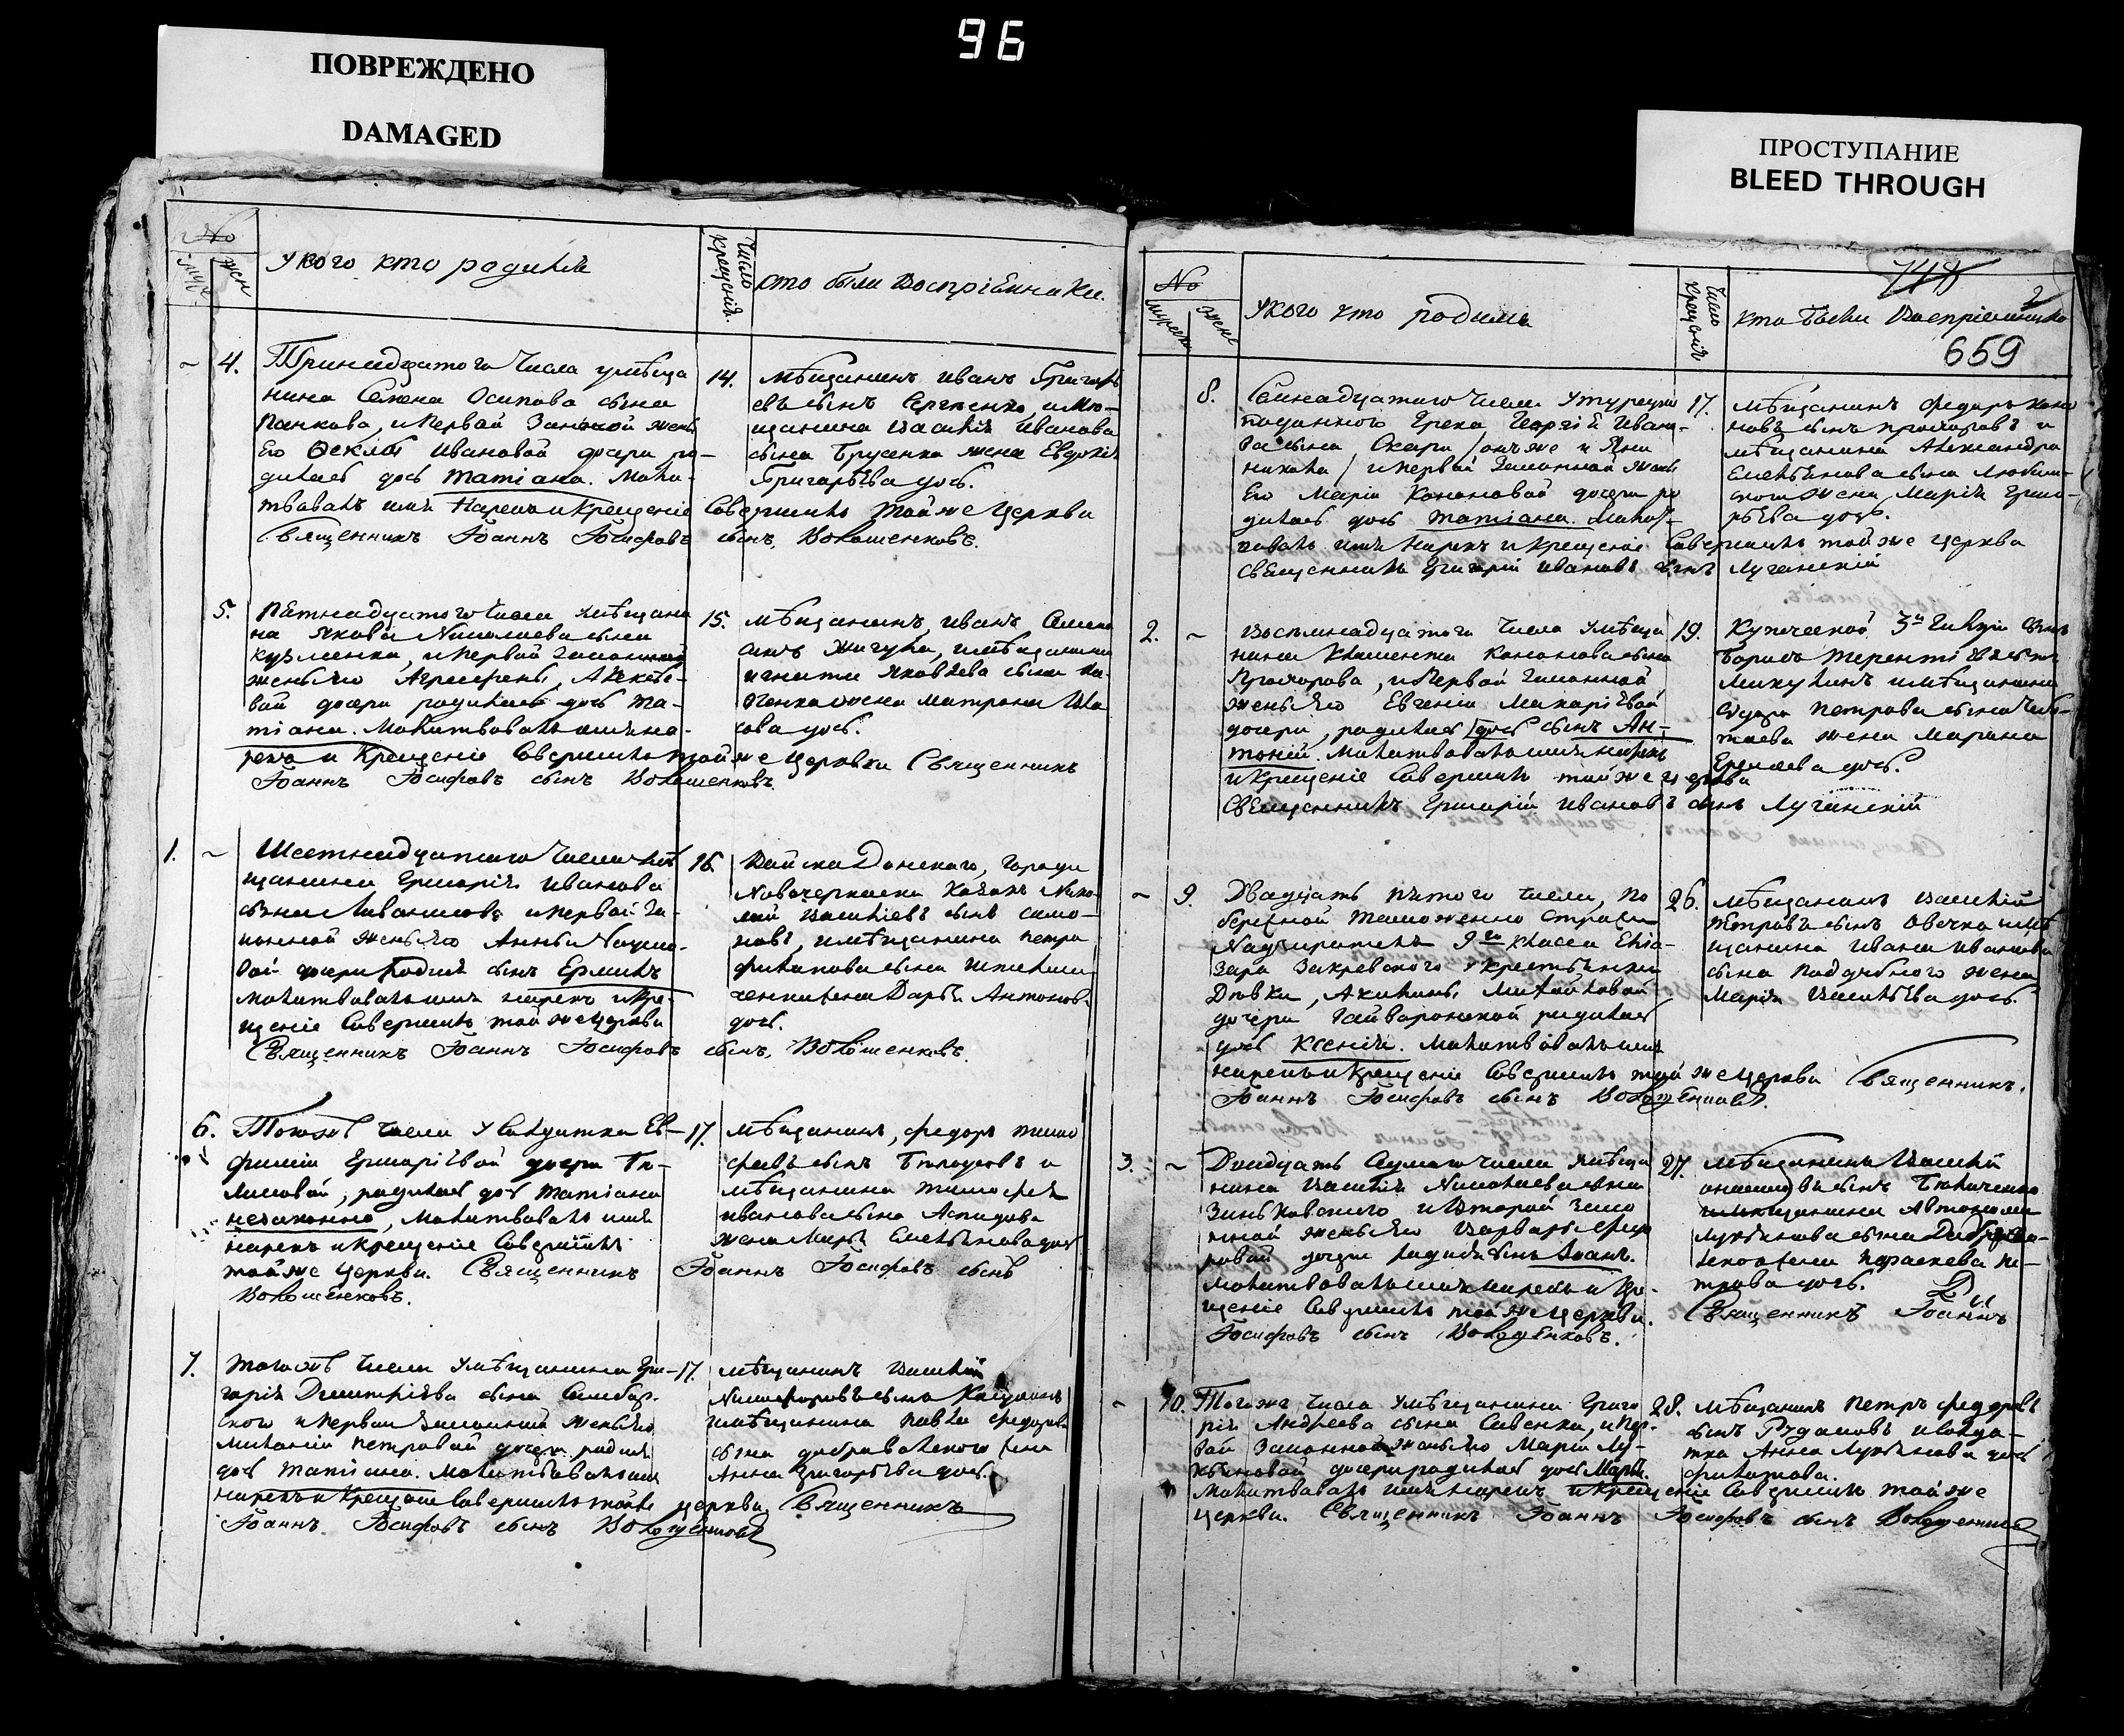 96
ПОВРЕЖДЕНО
DAMAGED
ПРОСТУПАНИЕ
BLEED THROUGH
№
муж
жен
У кого кто родился
Число крещенія.
кто были Воспріемники.
4.
Тринадцатого Числа умѣща
нина Семена Осипова сына
Панкова, и Первой Законой жены
Его Ѳеклы Ивановой дочери ро-
дилась дочь Татіана. Моли-
твовалъ имя Нарекъ и Крещеніе Совершилъ той же Церкви
Священникъ Іоаннъ Іосифовъ сынъ Волошенковъ.
14.
мѣщанинъ иванъ Григорь
евъ сынъ Сергіенко, и мѣ-
щанина Василія Иванова
сына Брусенка жена Евдокія
Григорьева дочь.
5.
Пятнадцатого Числа умѣщани
на Якова Николаева сына
Кузменка, и Первой Законной
жены его Агрипены, Алексѣе-
вой дочери родилась дочь Та-
тіана. Молитвовалъ имя на-
рекъ и Крещеніе Совершилъ той же Церкви Священникъ
Іоаннъ Іосифовъ сынъ Волошенковъ.
15.
мѣщанинъ, иванъ Семено
сынъ Жигула, и мѣщанина
игната Яковлева сына
жена Матрона
дочь.
1.
Шестнадцатого Числа умѣ
щанина Григорія Иванова
сына и Первой За-
конной жены его Анны Наумо-
вой дочери родился сынъ Ермилъ
молитвовалъ имя нарекъ и Кре-
щеніе Совершилъ той же Церкви
Священникъ Іоаннъ Іосифовъ сынъ Волошенковъ.
16.
Войска Донскаго, города
Новочеркаска Казакъ Нико-
лай Василіевъ сынъ Симо-
новъ, и мѣщанина петра
филипова сына
жена Дарья Антонова
дочь.
6.
Тогожъ Числа У Солдатки Ев-
фиміи Григоріевой дочери
родилась дочь Татіана
незаконно, Молитвовалъ имя
нарекъ и Крещеніе Совершилъ
той же Церкви. Священникъ Іоаннъ Іосифовъ сынъ
Волошенковъ.
17.
Мѣщанинъ, федоръ тимо
феевъ сынъ и
мѣщанина Тимофея
иванова сына Аспидова
жена Марья дочь
7.
тогожъ Числа Умѣщанина Гри-
горія Дмитріева сына Самбор-
ского и Первой Законной жены его
Меланіи Петровой дочери родил
дочь Татіана. Молитвовалъ имя
нарекъ и Крещеніе Совершилъ той же Церкви Священникъ
Іоаннъ Іосифовъ сынъ Волошенковъ
17.
мѣщанинъ Василій
Никифоровъ сынъ
и мѣщанина Павла федорова
сына добровольского жена
Анна Григорьева дочь.
№
мужес
жен
У кого кто родился
Число крещенія
кто были Воспріемники
659
8.
Семнадцатого Числа У турецко
подданного Грека Георгія Ивано
ва сына, онъ же и Яни
и Первой Законной жены
Его Маріи Кононовой дочери ро
дилась дочь Татіана. Молит-
вовалъ имя нарекъ и Крещеніе Совершилъ той же Церкви
Священникъ Григорій Ивановъ сынъ Луганскій
17.
мѣщанинъ федоръ Коно
новъ сынъ Прохоровъ и
мѣщанина Александра
сына
жена Марія Григо-
рьева дочь.
2.
Восемнадцатого Числа Умѣща
нина Климента Кононова сына
Прохорова, и Первой Законной
жены его Евгеніи Макаріевой
дочери, родился сынъ Ан-
тоній. Молитвовалъ имя нарекъ
и Крещеніе Совершилъ той же Церкви
Священникъ Григорій Ивановъ сынъ Луганскій
19.
Купеческой 3й Гилдіи сынъ
Борисъ Терентіевъ
Микулинъ и мѣщанина
Сидора Петрова сына
жена Марина
Ермолаева дочь.
9.
Двадцать пятого Числа, По
бережной Таможенно Стражи
Надзирателя 9го Класса Еліа-
зара Закревского У Крестьянки
Дѣвки, Акилины Михайловой
дочери Гайворонской родилась
дочь Ксенія. Молитвовалъ имя
нарекъ и Крещеніе Совершилъ той же Церкви Священникъ.
Іоаннъ Іосифовъ сынъ Волошенковъ.
26.
мѣщанинъ Василій
Петровъ сынъ Овечка и мѣ
щанина Ивана Иванова
сына Поддубного жена
Марія Васильева дочь.
3.
Двадцать Седмого Числа Умѣща
нина Василія Николаева сына
Зиньковского и Второй Зако
нной жены его Варвары Федо
ровой дочери родился сынъ Іоанъ.
Молитвовалъ имя нарекъ и Кре-
щеніе Совершилъ той же Церкви. Священникъ Іоаннъ
Іосифовъ сынъ Волошенковъ.
27.
мѣщанинъ Василій
сынъ
мѣщанина Автонома
Лукьянова сына
жена Параскева Пе-
трова дочь.
10.
Тогожъ Числа Умѣщанина Григо
рія Андреева сына Савенка, и Пер-
вой Законной жены его Маріи Лу-
кьяновой дочери родилась дочь Марѳа.
Молитвовалъ имя нарекъ и Крещеніе Совершилъ той же
Церкви. Священникъ Іоаннъ Іосифовъ сынъ Волошенковъ
28.
мѣщанинъ Петръ федоровъ
сынъ Рудаковъ и Солда-
тка Анна Лукьянова дочь
филатова.